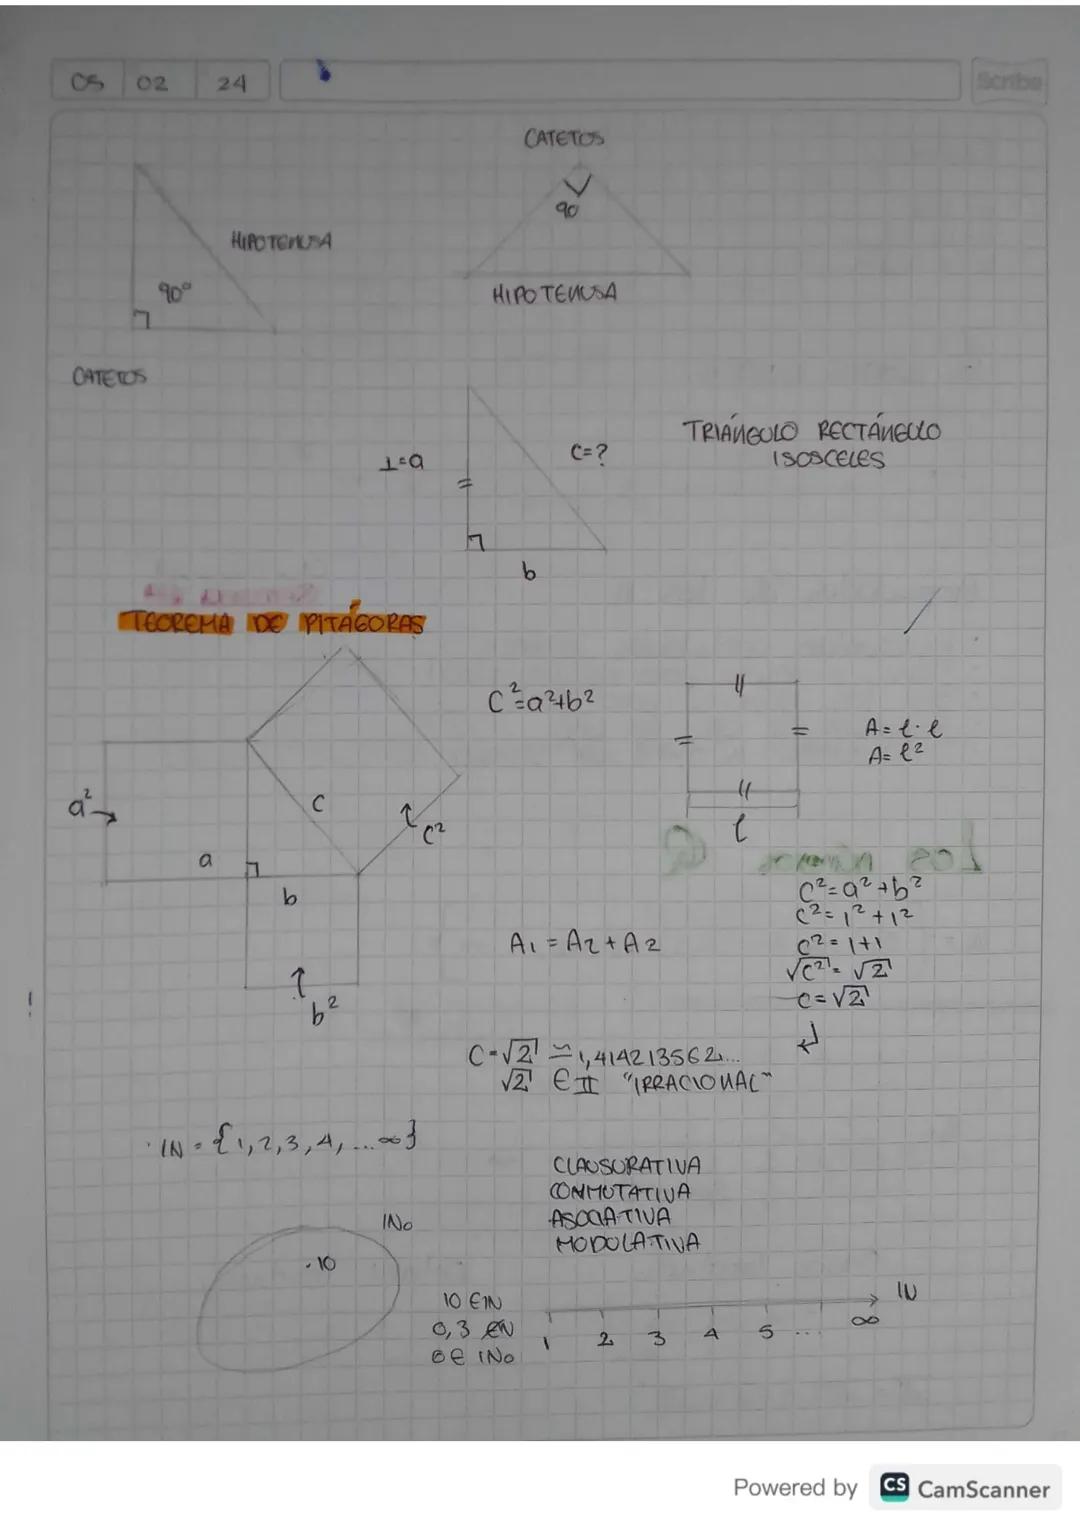 05 02 24
Scribe
CATETOS
90
HIPOTENUSA
90°
HIPOTENUSA
CATETOS
1=a
C=?
TRIÁNGULO RECTÁNGULO
ISOSCELES
b
TEOREMA DE PITÁGORAS
C²=a²+b²
A= l·l
A= l²
a²
C
C²
l
a
b
Los números
C²=a²+b²
C²=1²+1²
A1=A2+A2
C²=1+1
√C²=√2
C=√2
b²
C=√2 ≃1,414213562...
√2 ∈ II "IRRACIONAL"
·IN={1,2,3,4,...∞}
CLAUSURATIVA
CONMUTATIVA
ASOCIATIVA
MODULATIVA
INo
·10
10 ∈ IN
0,3 ∈N
0∈ INo
IN
1 2 3 4 5 ... ∞
Powered by CS CamScanner